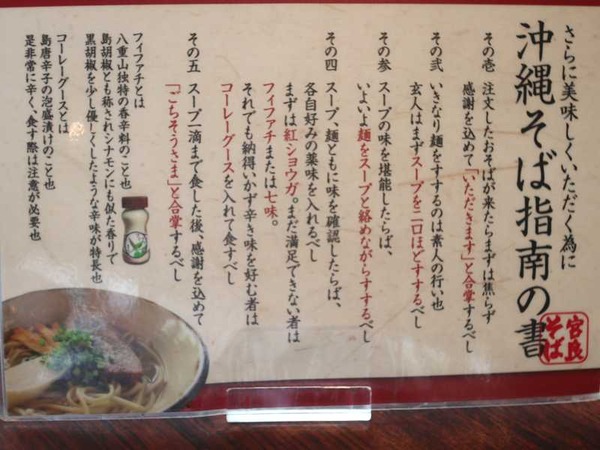 さらに美味しくいただく為に
沖縄そば指南の書
宮良そば
その壱 注文したおそばが来たらまずは焦らず
感謝を込めて「いただきます」と合掌するべし
その弐 いきなり麺をすするのは素人の行い也
玄人はまずスープを二口ほどすするべし
その参 スープの味を堪能したらば、
いよいよ麺をスープと絡めながらすするべし
その四 スープ、麺ともに味を確認したらば、
各自好みの薬味を入れるべし
まずは紅ショウガ。まだ満足できない者は
フィファチまたは七味。
それでも納得いかず辛き味を好む者は
コーレーグースを入れて食すべし
その五 スープ一滴まで食した後、感謝を込めて
「ごちそうさま」と合掌するべし
フィファチとは
八重山独特の香辛料のこと也
島胡椒とも称されシナモンにも似た香りで
黒胡椒を少し優しくしたような辛味が特長也
コーレーグースとは
島唐辛子の泡盛漬けのこと也
是非常に辛く、食す際は注意が必要也